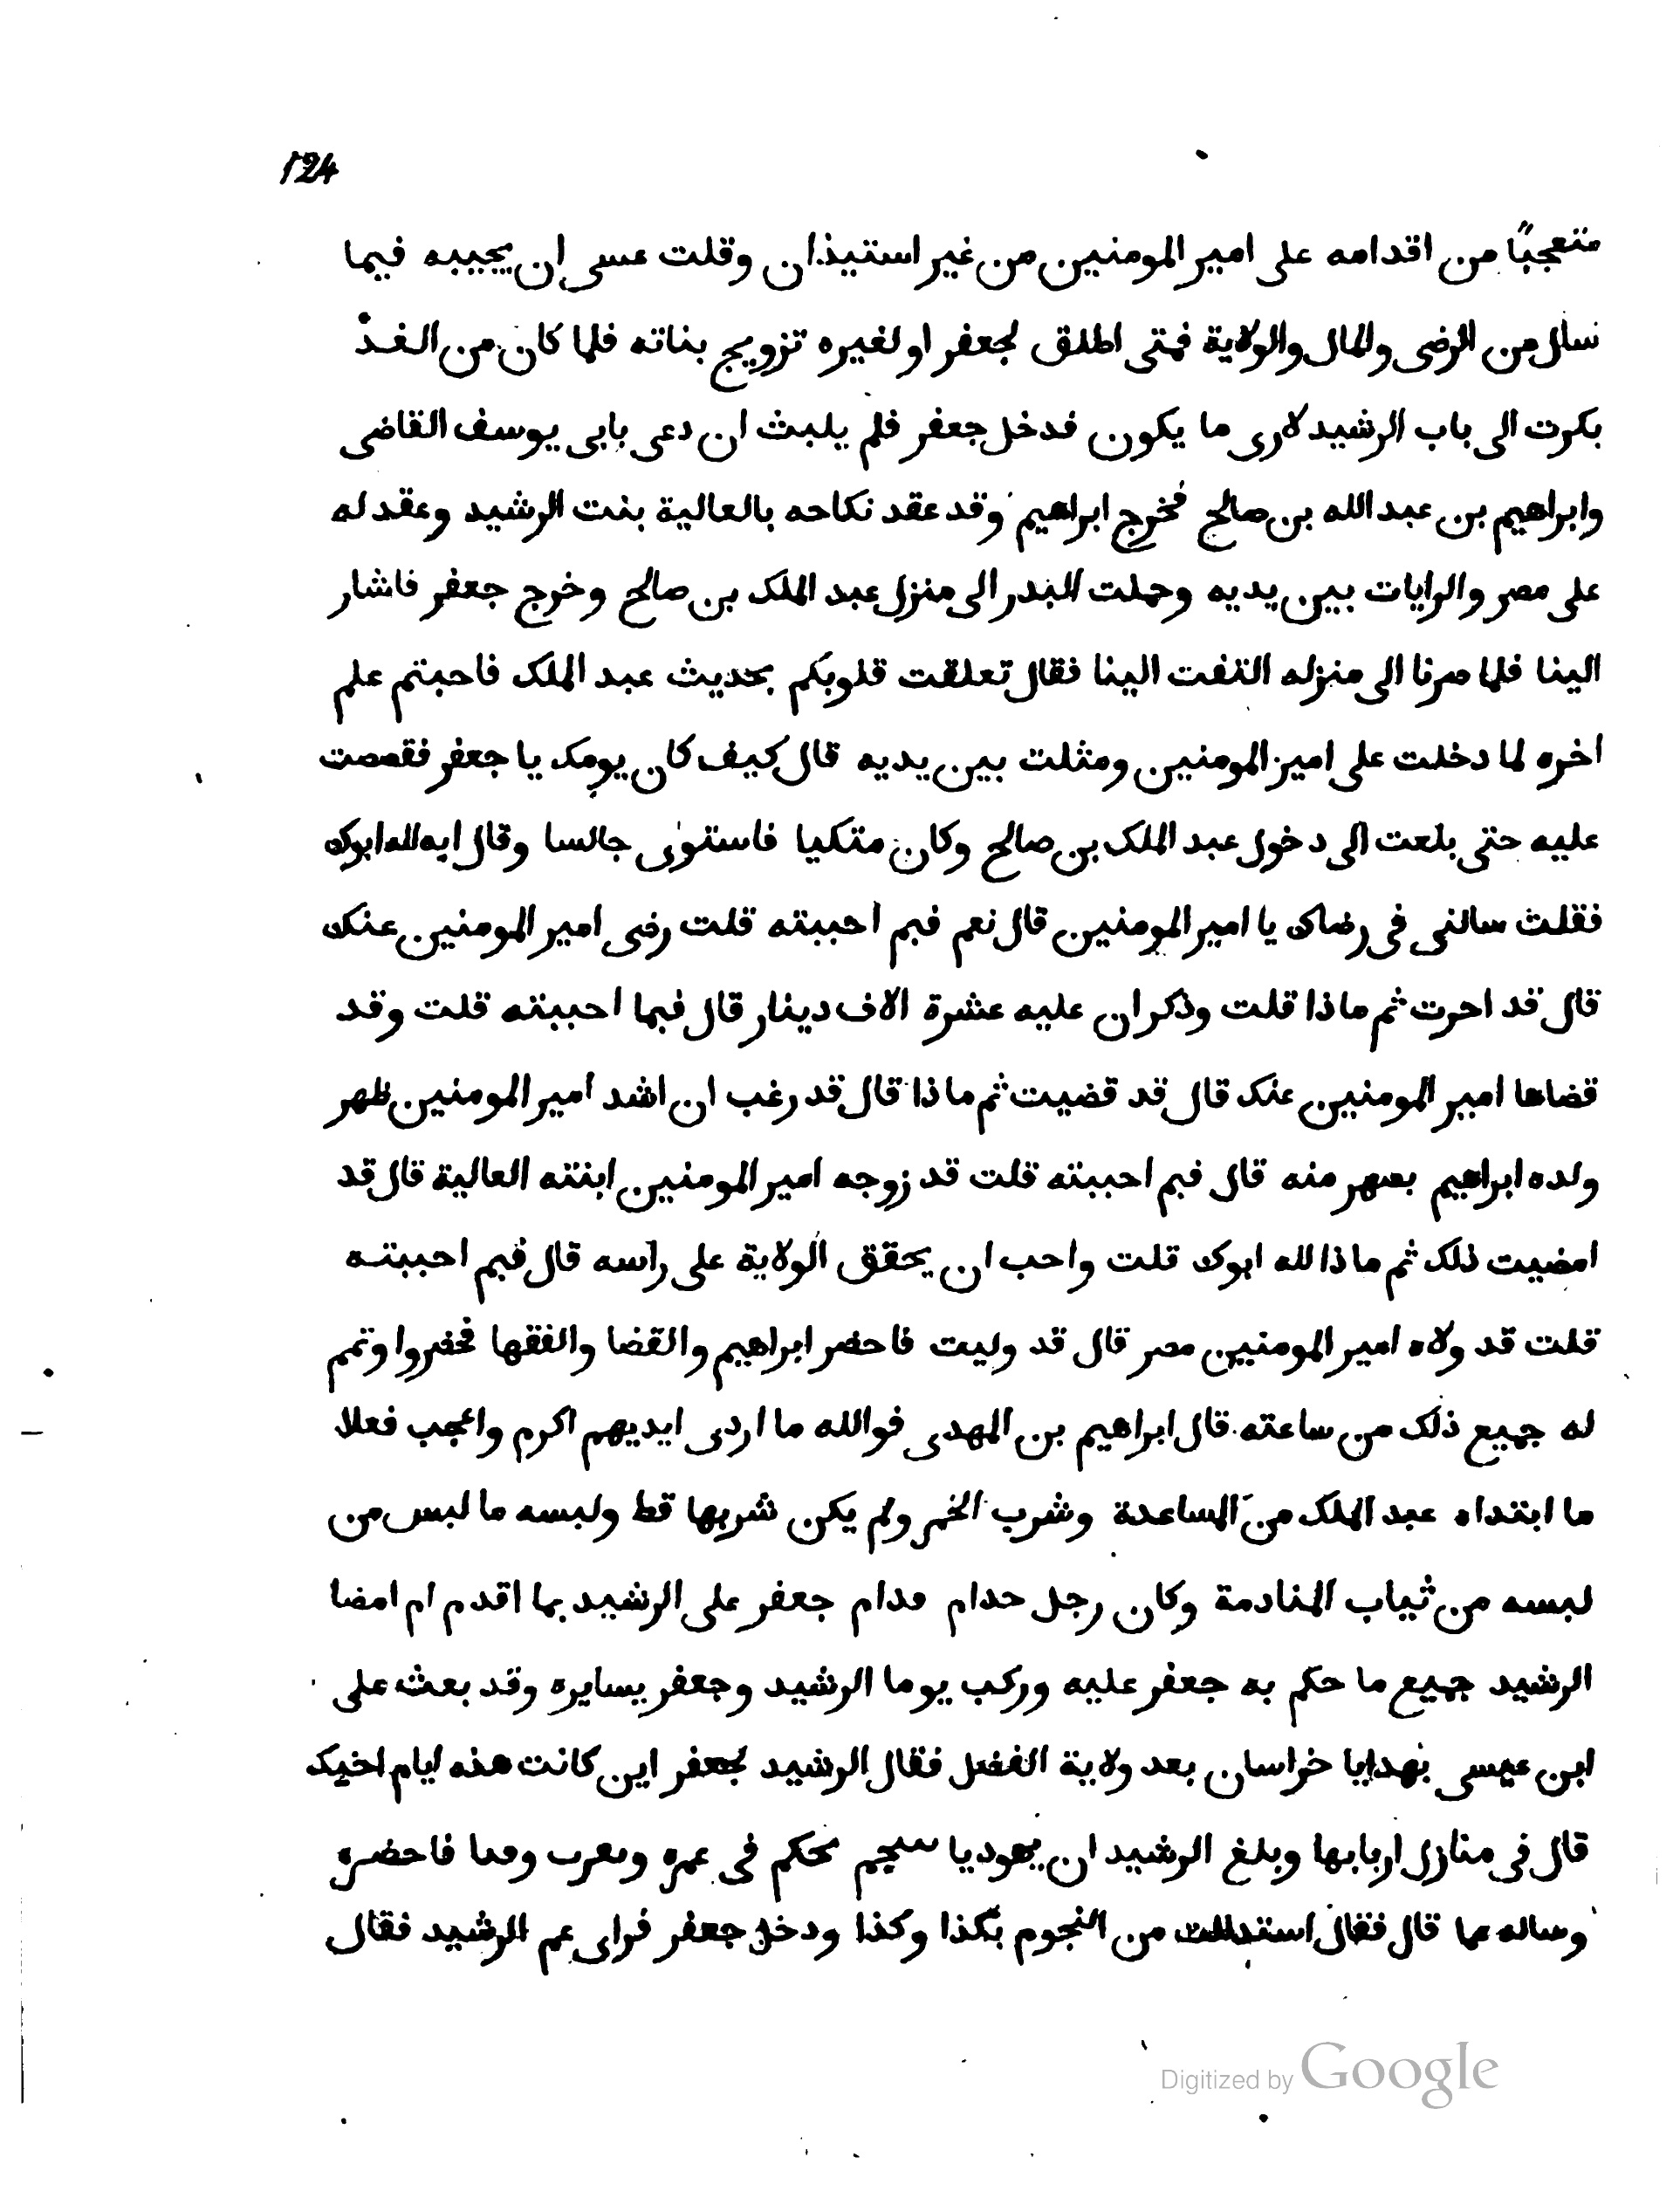 124
متعجبًا من اقدامه على امير المومنين من غير استيذان وقلت عسى ان يجيبه فيما
سال من الرضى والمال والولاية فمتى اطلق لجعفر او لغيره تزويج بناته فلما كان من الغد
بكرت الى باب الرشيد لارى ما يكون فدخل جعفر فلم يلبث ان دعى بابى يوسف القاضى
وابراهيم بن عبد الله بن صالح فخرج ابراهيم وقد عقد نكاحه بالعالية بنت الرشيد وعقد له
على مصر والرايات بين يديه وحملت البدر الى منزل عبد الملك بن صالح وخرج جعفر فاشار
الينا فلما صرنا الى منزله التفت الينا فقال تعلقت قلوبكم بحديث عبد الملك فاحبتم علم
اخره لما دخلت على امير المومنين ومثلت بين يديه قال كيف كان يومك يا جعفر فقصصت
عليه حتى بلعت الى دخول عبد الملك بن صالح وكان متكيا فاستوى جالسا وقال ايه لله ابوك
فقلت سالنى فى رضاك يا امير المومنين قال نعم فبم احببته قلت رضى امير المومنين عنك
قال قد احرت ثم ماذا قلت وذكر ان عليه عشرة الاف دينار قال فبما احببته قلت وقد
قضاها امير المومنين عنك قال قد قضيت ثم ماذا قال قد رغب ان اشد امير المومنين ظهر
ولده ابراهيم بصهر منه قال فبم احببته قلت قد زوجه امير المومنين ابنته العالية قال قد
امضيت ذلك ثم ماذا لله ابوك قلت واحب ان يحقق الولاية على راسه قال فبم احببته
قلت قد ولاه امير المومنين مصر قال قد وليت فاحضر ابراهيم والقضا والفقها فحضروا وتمم
له جميع ذلك من ساعته قال ابراهيم بن المهدى فوالله ما اردى ايديهم اكرم واعجب فعلا
ما ابتداه عبد الملك من المساعدة وشرب الخمر ولم يكن شربها قط ولبسه ما لبس من
لبسه من ثياب المنادمة وكان رجل حدام جعفر على الرشيد بما اقدم ام امضا
الرشيد جميع ما حكم به جعفر عليه وركب يوما الرشيد وجعفر يسايره وقد بعث على
ابن عيسى بهدايا خراسان بعد ولاية الفضل فقال الرشيد لجعفر اين كانت هذه ايام اخيك
قال فى منازل اربابها وبلغ الرشيد ان يهوديا يحكم فى عمره فاحضره
وساله عما قال فقال استدللت من النجوم بكذا وكذا ودخل جعفر فراى غم الرشيد فقال
Digitized by Google